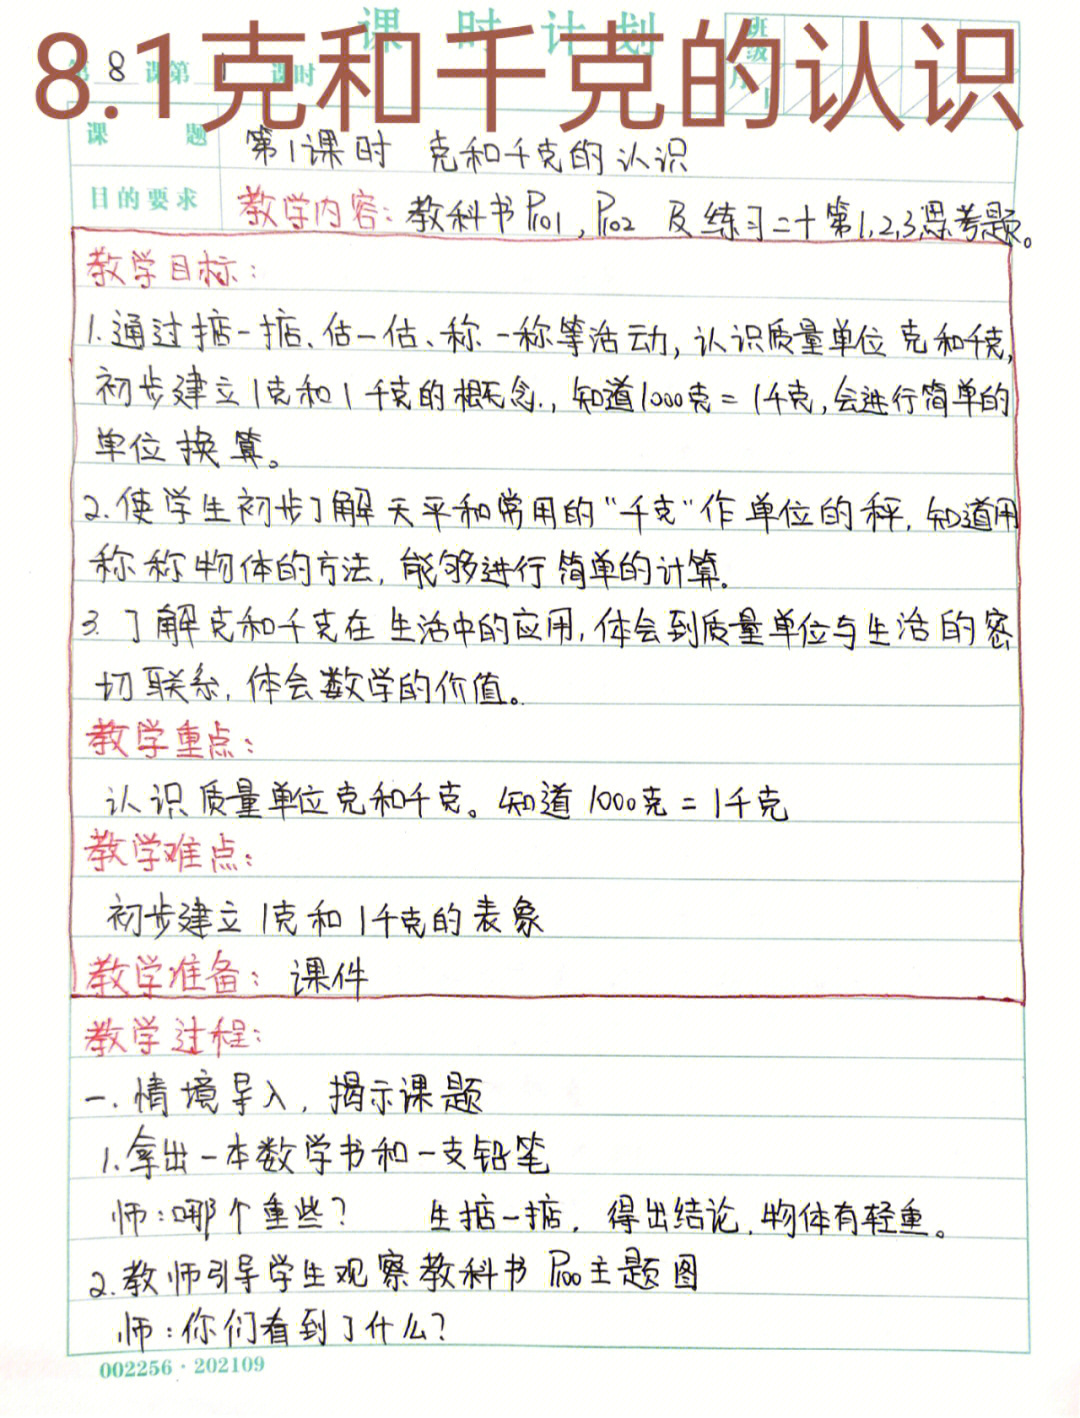 课时计划
8.1克和千克的认识
第 8 课第 1 课时
班级
课题
第1课时 克和千克的认识
目的要求
教学内容:教科书P101,P102 及练习二十第1,2,3思考题。
教学目标:
1.通过掂一掂、估一估、称一称等活动,认识质量单位克和千克,
初步建立1克和1千克的概念.,知道1000克=1千克,会进行简单的
单位换算。
2.使学生初步了解天平和常用的“千克”作单位的秤,知道用
称称物体的方法,能够进行简单的计算.
3.了解克和千克在生活中的应用,体会到质量单位与生活的密
切联系,体会数学的价值。
教学重点:
认识质量单位克和千克。知道1000克=1千克
教学难点:
初步建立1克和1千克的表象
教学准备:课件
教学过程:
一.情境导入,揭示课题
1.拿出一本数学书和一支铅笔
师:哪个重些? 生掂一掂,得出结论,物体有轻重。
2.教师引导学生观察教科书P100主题图
师:你们看到了什么?
002256·202109